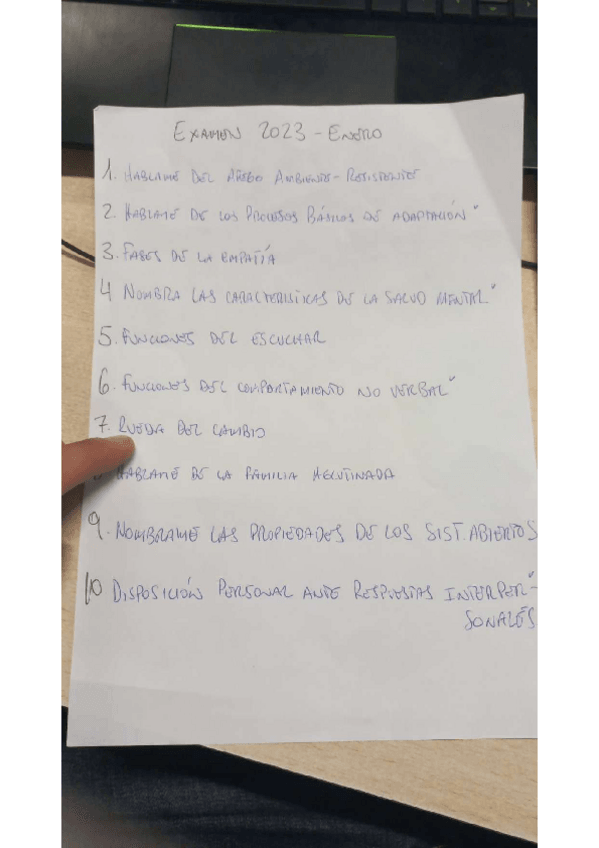 EXAMEN 2023 - ENERO
1. HABLAME DEL APEGO AMBIENTE-RESISTENTE
2. HABLAME DE LOS PROCESOS BÁSICOS DE ADAPTACIÓN"
3. FASES DE LA EMPATÍA
4 NOMBRA LAS CARACTERISTICAS DE LA SALUD MENTAL"
5. FUNCIONES DEL ESCUCHAR
6. FUNCIONES DEL COMPORTAMIENTO NO VERBAL"
7. RUEDA DEL CAMBIO
HABLAME DE LA FAMILIA AGLUTINADA
9. NOMBRAME LAS PROPIEDADES DE LOS SIST. ABIERTOS
10 DISPOSICIÓN PERSONAL ANTE RESPUESTAS INTERPER-"
SONALES